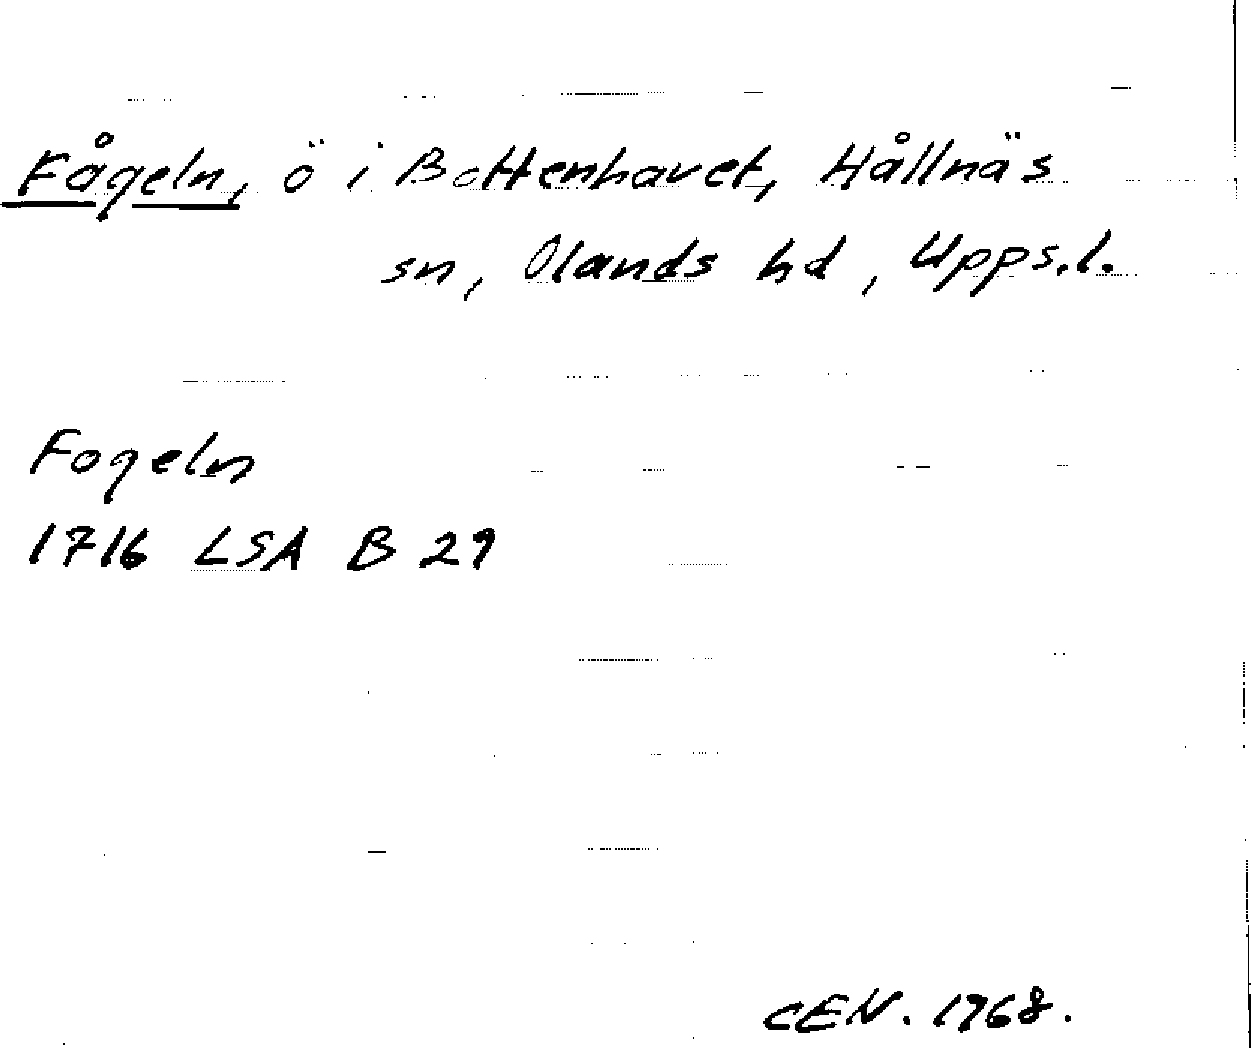 Fågeln, ö i Bottenhavet, Hållnäs
sn, Olands hd, Upps.l.
Fogeln
1716 LSA B 29
CEN. 1968.